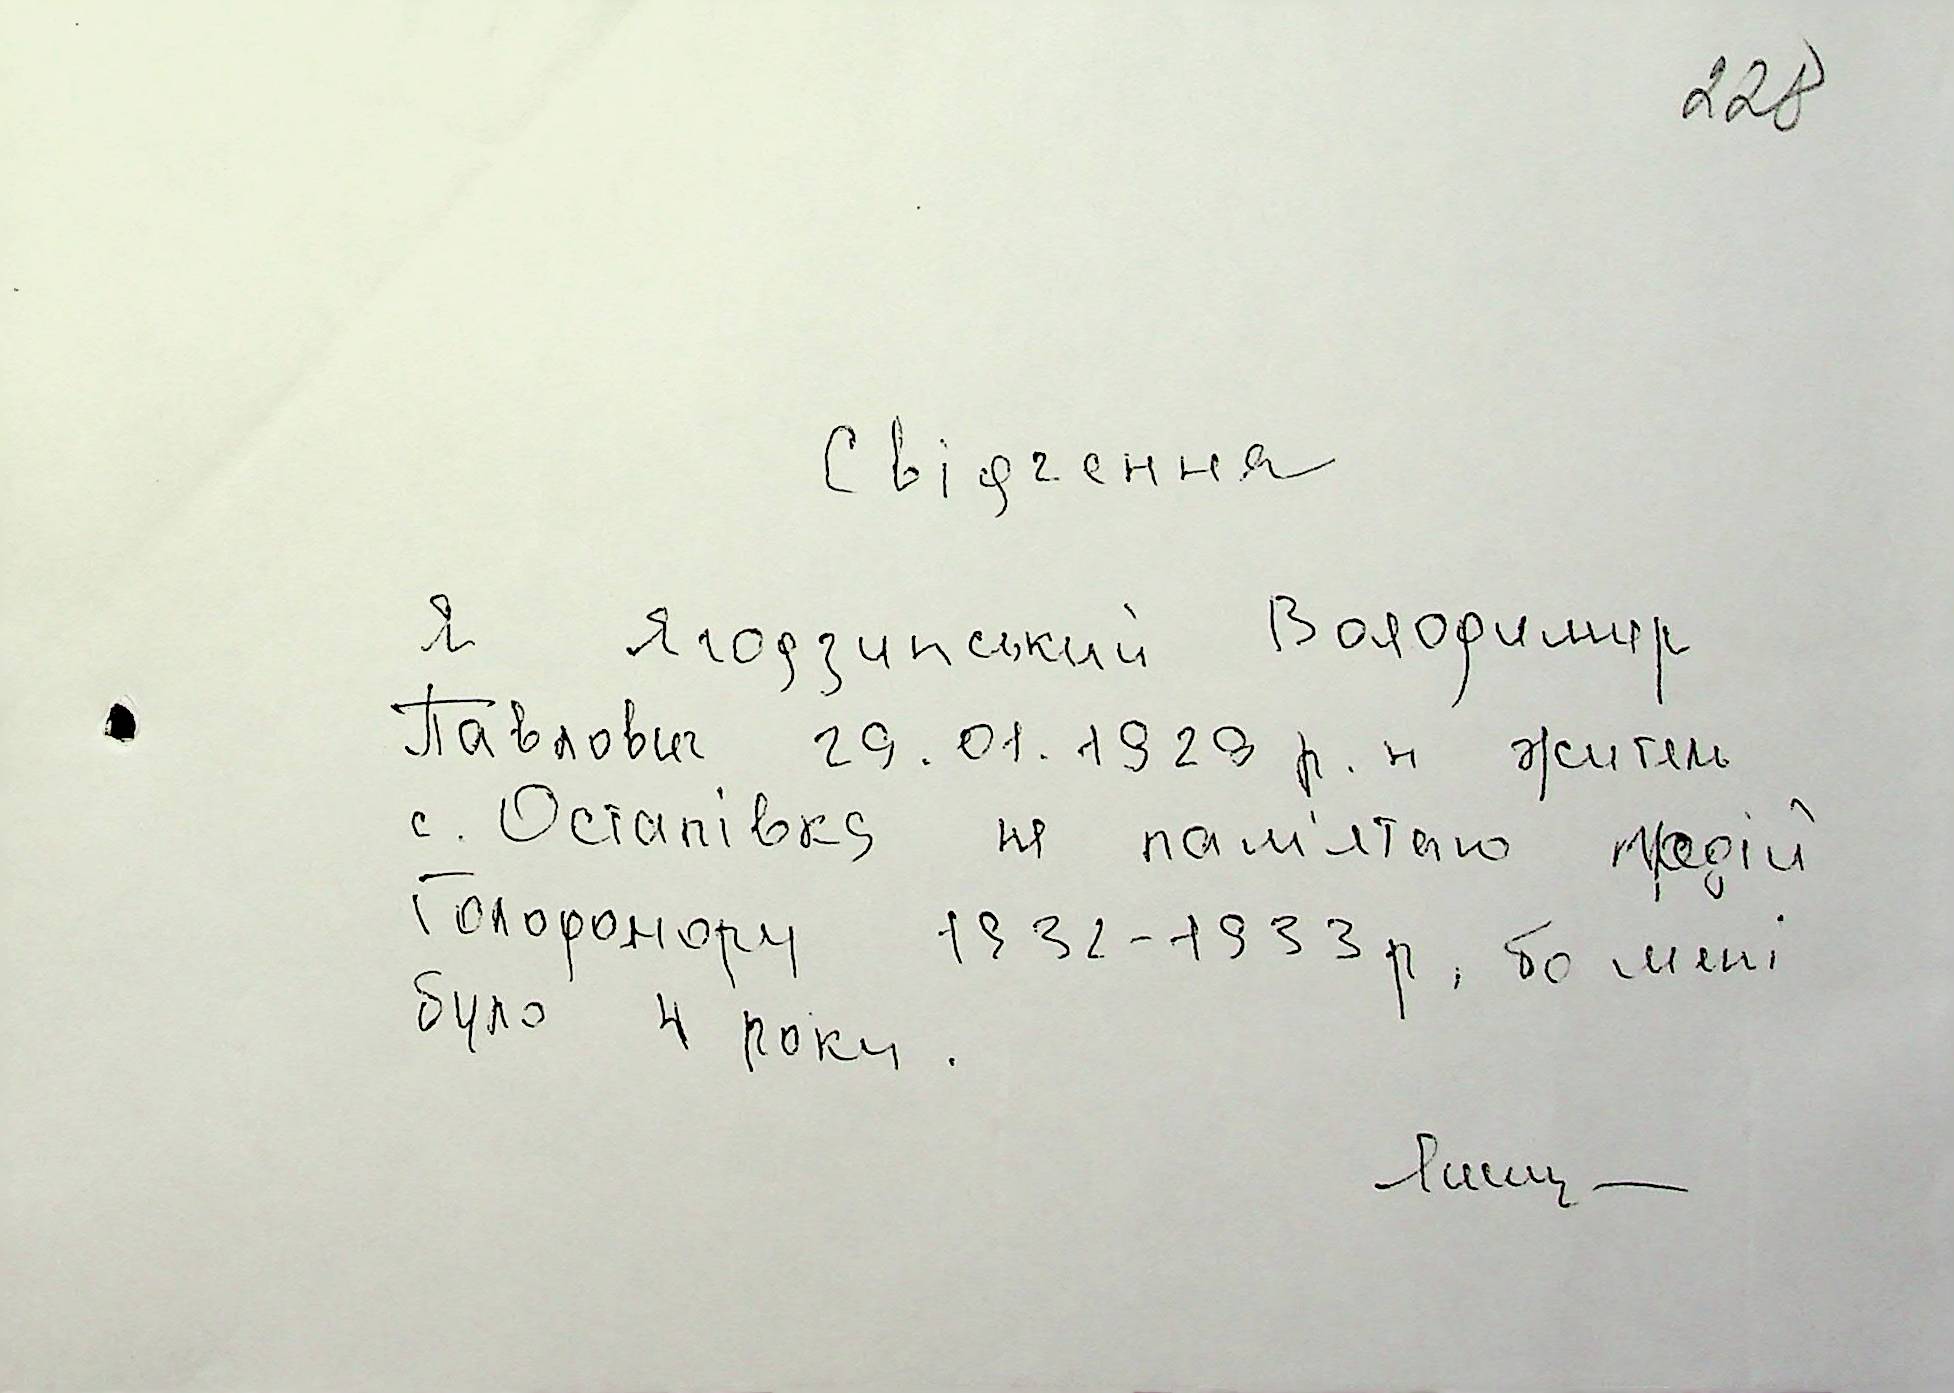 228
Свідчення
Я Ягодзинський Володимир
Павлович 29.01.1929 р.н житель
с. Остапівка не пам'ятаю подій
Голодомору 1932-1933р, бо мені
було 4 роки.